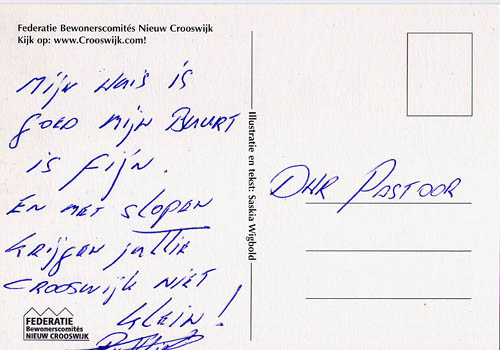 Federatie Bewonerscomités Nieuw Crooswijk
Kijk op: www.Crooswijk.com!
Mijn Huis is
goed mijn Buurt
is fijn.
En met slopen
krijgen jullie
Crooswijk niet
klein!
Illustratie en tekst: Saskia Wigbold
DHR Pastoor
FEDERATIE
Bewonerscomités
NIEUW CROOSWIJK